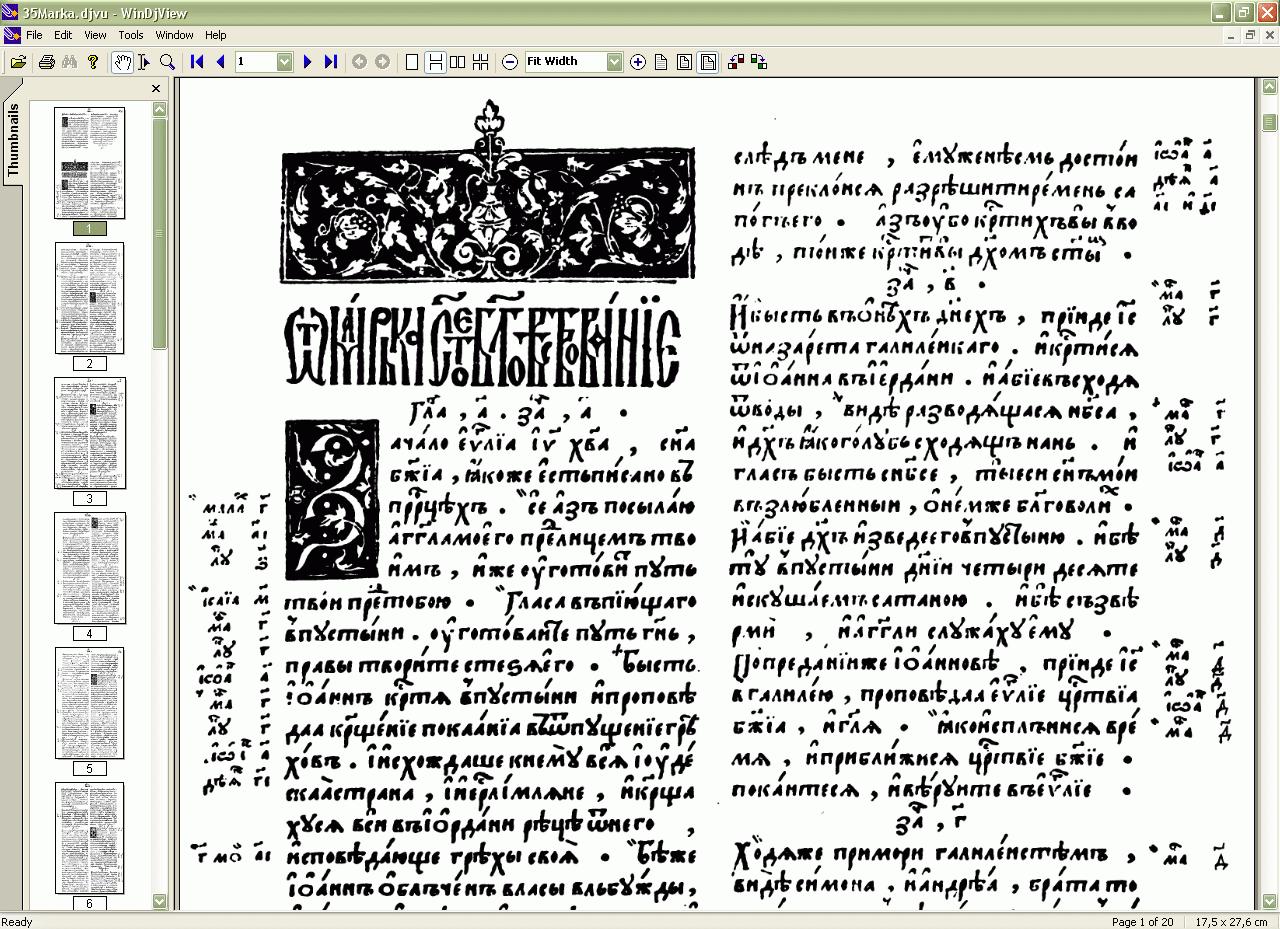 35Marka.djvu - WinDjView
File Edit View Tools Window Help
1 Fit Width
Thumbnails
1
2
3
4
5
6
Гл҃а , а҃ . за҃ , а҃ .
ача́ло еѵ҃лїа і҃ѵ х҃ва , сн҃а
бж҃їа , ꙗ҆коже е҆стьпи́сано въ
прⷪ҇рцѣхъ . се а҆зъ посыла́ю
а҆гг҃ламоего пре лице́мъ тво
и҆мъ , и҆же оу҆гото́ви пу́ть
тво́и пре тобою . Гла́са въпїю́щаго
впусты́ни . оу҆гото́ваите пу́ть гн҃ь ,
пра́вы твори́те стезѧ̀ е҆го . Бы́сть
і҆ѡа́ннъ крⷭ҇тѧ впусты́ни и҆проповѣ
даа кр҃ще́нїе покаа́нїа въѿпуще́нїе грѣ
хо́въ . и҆исхожда́ше кнему̀ всѧ̀ і҆оуде́
скаа̀страна , и҆і҆ерⷭ҇ли́млѧне , и҆кр҃ща
хусѧ вси въі҆ѻрда́ни рѣцѣ̀ ѿнего ,
и҆сповѣ́дающе грѣхы̀ своѧ̀ . Бѣ́же
і҆ѡа́ннъ ѻ҆блъче́нъ власы вльбу́жды ,
слѣ́дъ мене , е҆му́женѣсмь досто́ин
нъ прекло́исѧ разрѣши́тиреме́нь са
по́гъего . а҆зъоу҆́бо крⷭ҇ти́хъвы̀ вво
дѣ̀ , то́иже крⷭ҇ти́твы дх҃омъ ст҃ы
за҃ , в҃ .
И҆бы́сть въѻ҆́ны́хъ дн҃ехъ , прїи́де і҆с҃
ѿназаре́та галиле́искаго . и҆крⷭ҇ти́сѧ
ѿі҆ѡа́нна въі҆ерда́ни . и҆а́бїевъсходѧ̀
ѿводы̀ , видѣ разводѧ́щасѧ нб҃са ,
и҆дх҃ъ ꙗ҆́коголу́бь сходѧ́щъ нань . и҆
гла́съ бы́сть снб҃се , ты̀еси сн҃ъмо́и
възлю́бленныи , ѻ҆не́мже бл҃говоли́х .
И҆а́бїе дх҃ъ и҆зведе́его впусты́ню . и҆бѣ̀
ту̀ впусты́ни дн҃їи четы́ри десѧте
и҆скуша́емъ сатано́ю . и҆бѣ̀ съзвѣ
рми̂ , и҆а҆́гг҃ли служа́хуе҆му̀ .
Попреда́нїиже і҆ѡа́нновѣ , прїи́де і҆с҃
вгалиле́ю , проповѣ́даа еѵ҃лїе црⷭ҇твїа
бж҃їа , и҆гл҃ѧ . ꙗ҆кои҆сплъ́нисѧ вре́
мѧ , и҆прибли́жисѧ црⷭ҇твїе бж҃їе .
пока́итесѧ , и҆вѣ́руите въеѵ҃лїе .
за҃ , г҃
Ходѧ́же примо́ри галиле́истѣмъ ,
ви́дѣ си́мона , и҆а҆ндрѣ́а , бра́та то
Ready
Page 1 of 20 17,5 x 27,6 cm